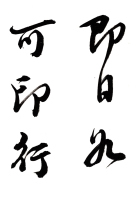 即日
可印行